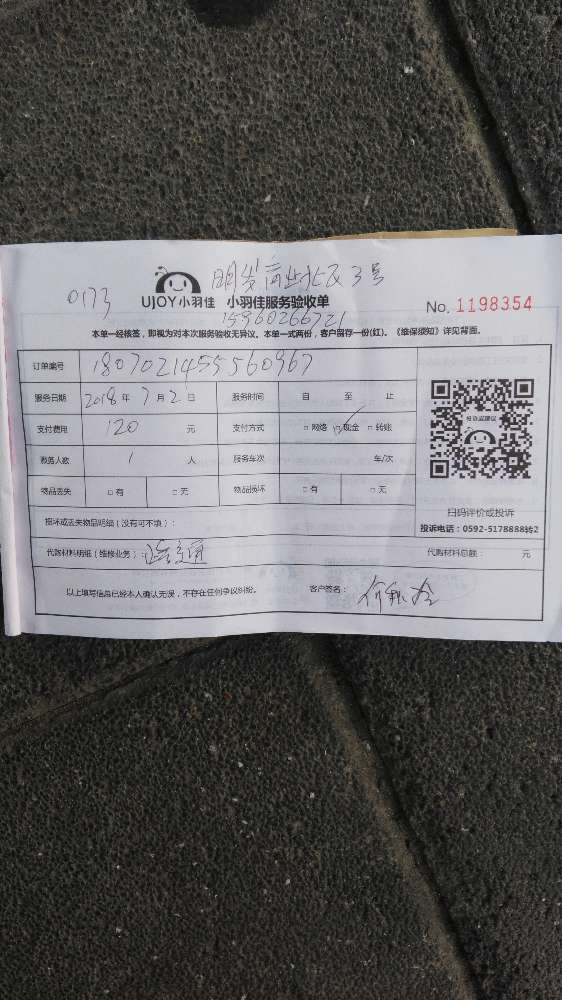 0173
明发商业北区3号
UJOY小羽佳 小羽佳服务验收单
15960266721
No. 1198354
本单一经核签,即视为对本次服务验收无异议。本单一式两份,客户留存一份(红)。《维保须知》详见背面。
订单编号 1807021455560967
服务日期 2018年 7月 2日 服务时间 自 至 止
支付费用 120 元 支付方式 □网络 ☑现金 □转账
服务人数 1 人 服务车次 车/次
物品丢失 □有 □无 物品损坏 □有 □无
扫码评价或投诉
投诉电话:0592-5178888转2
损坏或丢失物品明细(没有可不填):
代购材料明细(维修业务): 代购材料总额: 元
以上填写信息已经本人确认无误,不存在任何争议纠纷。 客户签名: